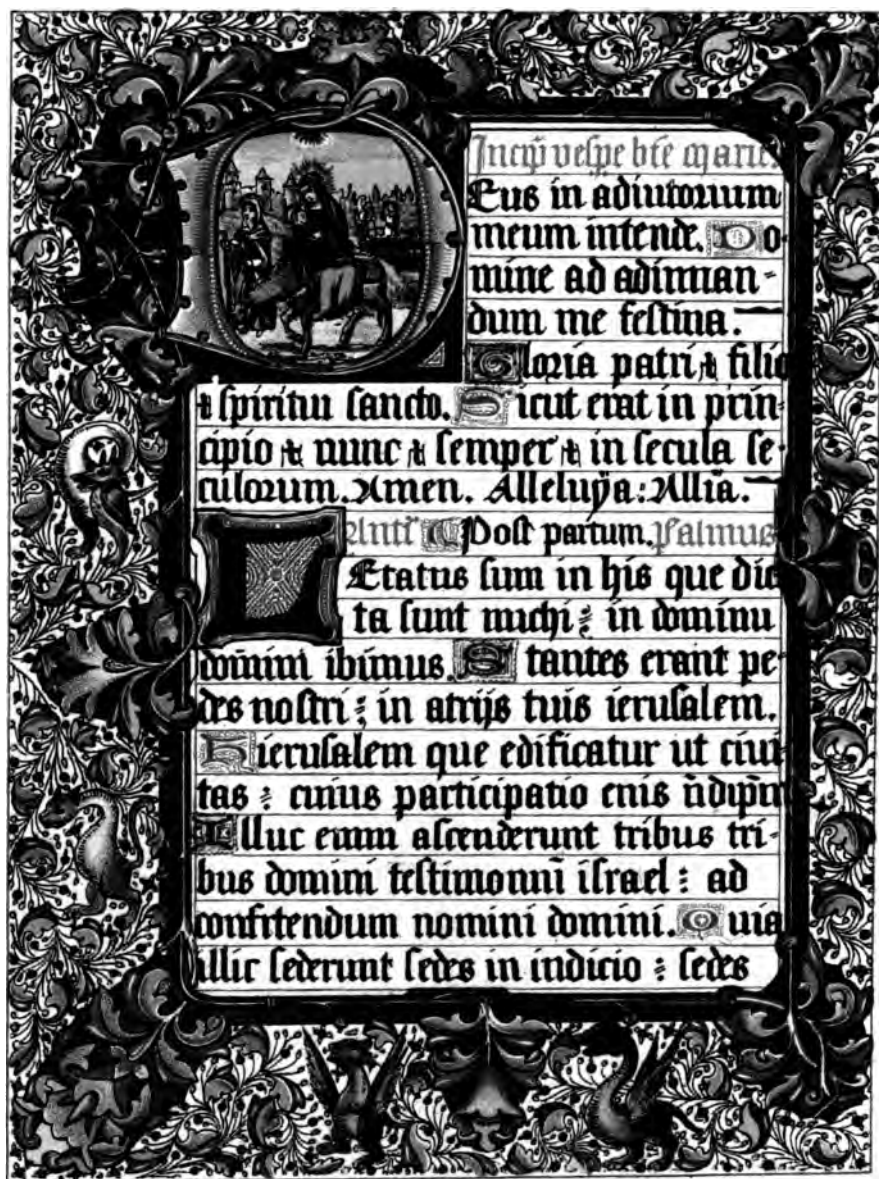 Incip̄ vesp̄e bt̄e marie
Deus in adiutorium
meum intende. Do-
mine ad adiuuan-
dum me festina.
Gloria patri ⁊ filio
⁊ spiritui sancto. Sicut erat in prin-
cipio ⁊ nunc ⁊ semper ⁊ in secula se-
culorum. Amen. Alleluÿa: Allīa.
Ant̄ Post partum. Psalmus
Letatus sum in his que dic
ta sunt michi: in dominu
domini ibimus. Stantes erant pe-
des nostri: in atrijs tuis ierusalem.
Hierusalem que edificatur ut ciui-
tas: cuius participatio eius
Illuc enim ascenderunt tribus tri-
bus domini testimoniū israel: ad
confitendum nomini domini. Quia
illic sederunt sedes in iudicio: sedes